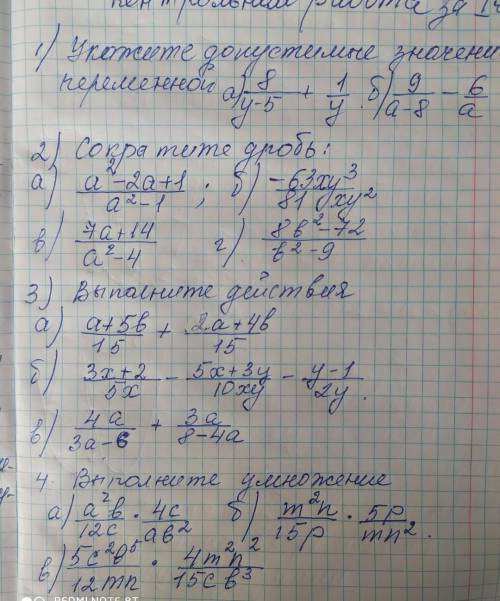 контрольная работа за I
1) Укажите допустимые значени
переменной а) 8/(y-5) + 1/y б) 9/(a-8) - 6/a
2) Сократите дробь:
а) (a²-2a+1)/(a²-1) ; б) (-63xy³)/(81xy²)
в) (7a+14)/(a²-4) г) (8b²-72)/(b²-9)
3) Выполните действия
а) (a+5b)/15 + (2a+4b)/15
б) (3x+2)/(5x) - (5x+3y)/(10xy) - (y-1)/(2y).
в) (4a)/(3a-6) + (3a)/(8-4a)
4. Выполните умножение
а) (a²b)/(12c) · (4c)/(ab²) б) (m²n)/(15p) · (5p)/(mn²).
в) (5c²b⁵)/(12mn) · (4m²n²)/(15cb³)
REDMI NOTE 8T